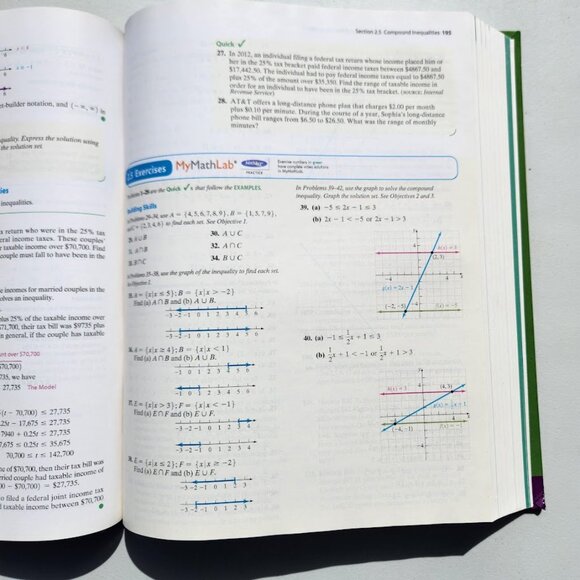 Section 2.5 Compound Inequalities 195
Quick ✓
27. In 2012, an individual filing a federal tax return whose income placed him or
her in the 25% tax bracket paid federal income taxes between $4867.50 and
$17,442.50. The individual had to pay federal income taxes equal to $4867.50
plus 25% of the amount over $35,350. Find the range of taxable income in
order for an individual to have been in the 25% tax bracket. (SOURCE: Internal
Revenue Service)
28. AT&T offers a long-distance phone plan that charges $2.00 per month
plus $0.10 per minute. During the course of a year, Sophia's long-distance
phone bill ranges from $6.50 to $26.50. What was the range of monthly
minutes?
2.5 Exercises MyMathLab®
PRACTICE
Exercise numbers in green
have complete video solutions
in MyMathLab.
1–28 are the Quick ✓s that follow the EXAMPLES.
Building Skills
29–34, use A = {4, 5, 6, 7, 8, 9}, B = {1, 5, 7, 9},
and C = {2, 3, 4, 6} to find each set. See Objective 1.
29. A∪B
30. A∪C
31. A∩B
32. A∩C
33. B∩C
34. B∪C
In Problems 35–38, use the graph of the inequality to find each set.
See Objective 1.
35. A = {x|x ≤ 5}; B = {x|x > −2}
Find (a) A∩B and (b) A∪B.
−3 −2 −1 0 1 2 3 4 5 6
36. A = {x|x ≥ 4}; B = {x|x < 1}
Find (a) A∩B and (b) A∪B.
−1 0 1 2 3 4 5 6
−1 0 1 2 3 4 5 6
37. E = {x|x > 3}; F = {x|x < −1}
Find (a) E∩F and (b) E∪F.
−3 −2 −1 0 1 2 3 4
−3 −2 −1 0 1 2 3 4
38. E = {x|x ≤ 2}; F = {x|x ≥ −2}
Find (a) E∩F and (b) E∪F.
−3 −2 −1 0 1 2 3
−3 −2 −1 0 1 2 3
In Problems 39–42, use the graph to solve the compound
inequality. Graph the solution set. See Objectives 2 and 3.
39. (a) −5 ≤ 2x − 1 ≤ 3
(b) 2x − 1 < −5 or 2x − 1 > 3
h(x) = 3
(2, 3)
g(x) = 2x − 1
(−2, −5)
f(x) = −5
40. (a) −1 ≤ 1/2x + 1 ≤ 3
(b) 1/2x + 1 < −1 or 1/2x + 1 > 3
h(x) = 3
(4, 3)
g(x) = 1/2x + 1
(−4, −1)
f(x) = −1
set-builder notation, and (−∞, ∞) in
inequality. Express the solution using
the solution set.
inequalities.
return who were in the 25% tax
federal income taxes. These couples'
taxable income over $70,700. Find
couple must fall to have been in the
incomes for married couples in the
involves an inequality.
plus 25% of the taxable income over
their tax bill was $9735 plus
in general, if the couple has taxable
amount over $70,700
735, we have
27,735 The Model
(t − 70,700) ≤ 27,735
.25t − 17,675 ≤ 27,735
7940 + 0.25t ≤ 27,735
7,675 ≤ 0.25t ≤ 35,675
70,700 ≤ t ≤ 142,700
of $70,700, then their tax bill was
married couple had taxable income of
− $70,700) = $27,735.
filed a federal joint income tax
taxable income between $70,700